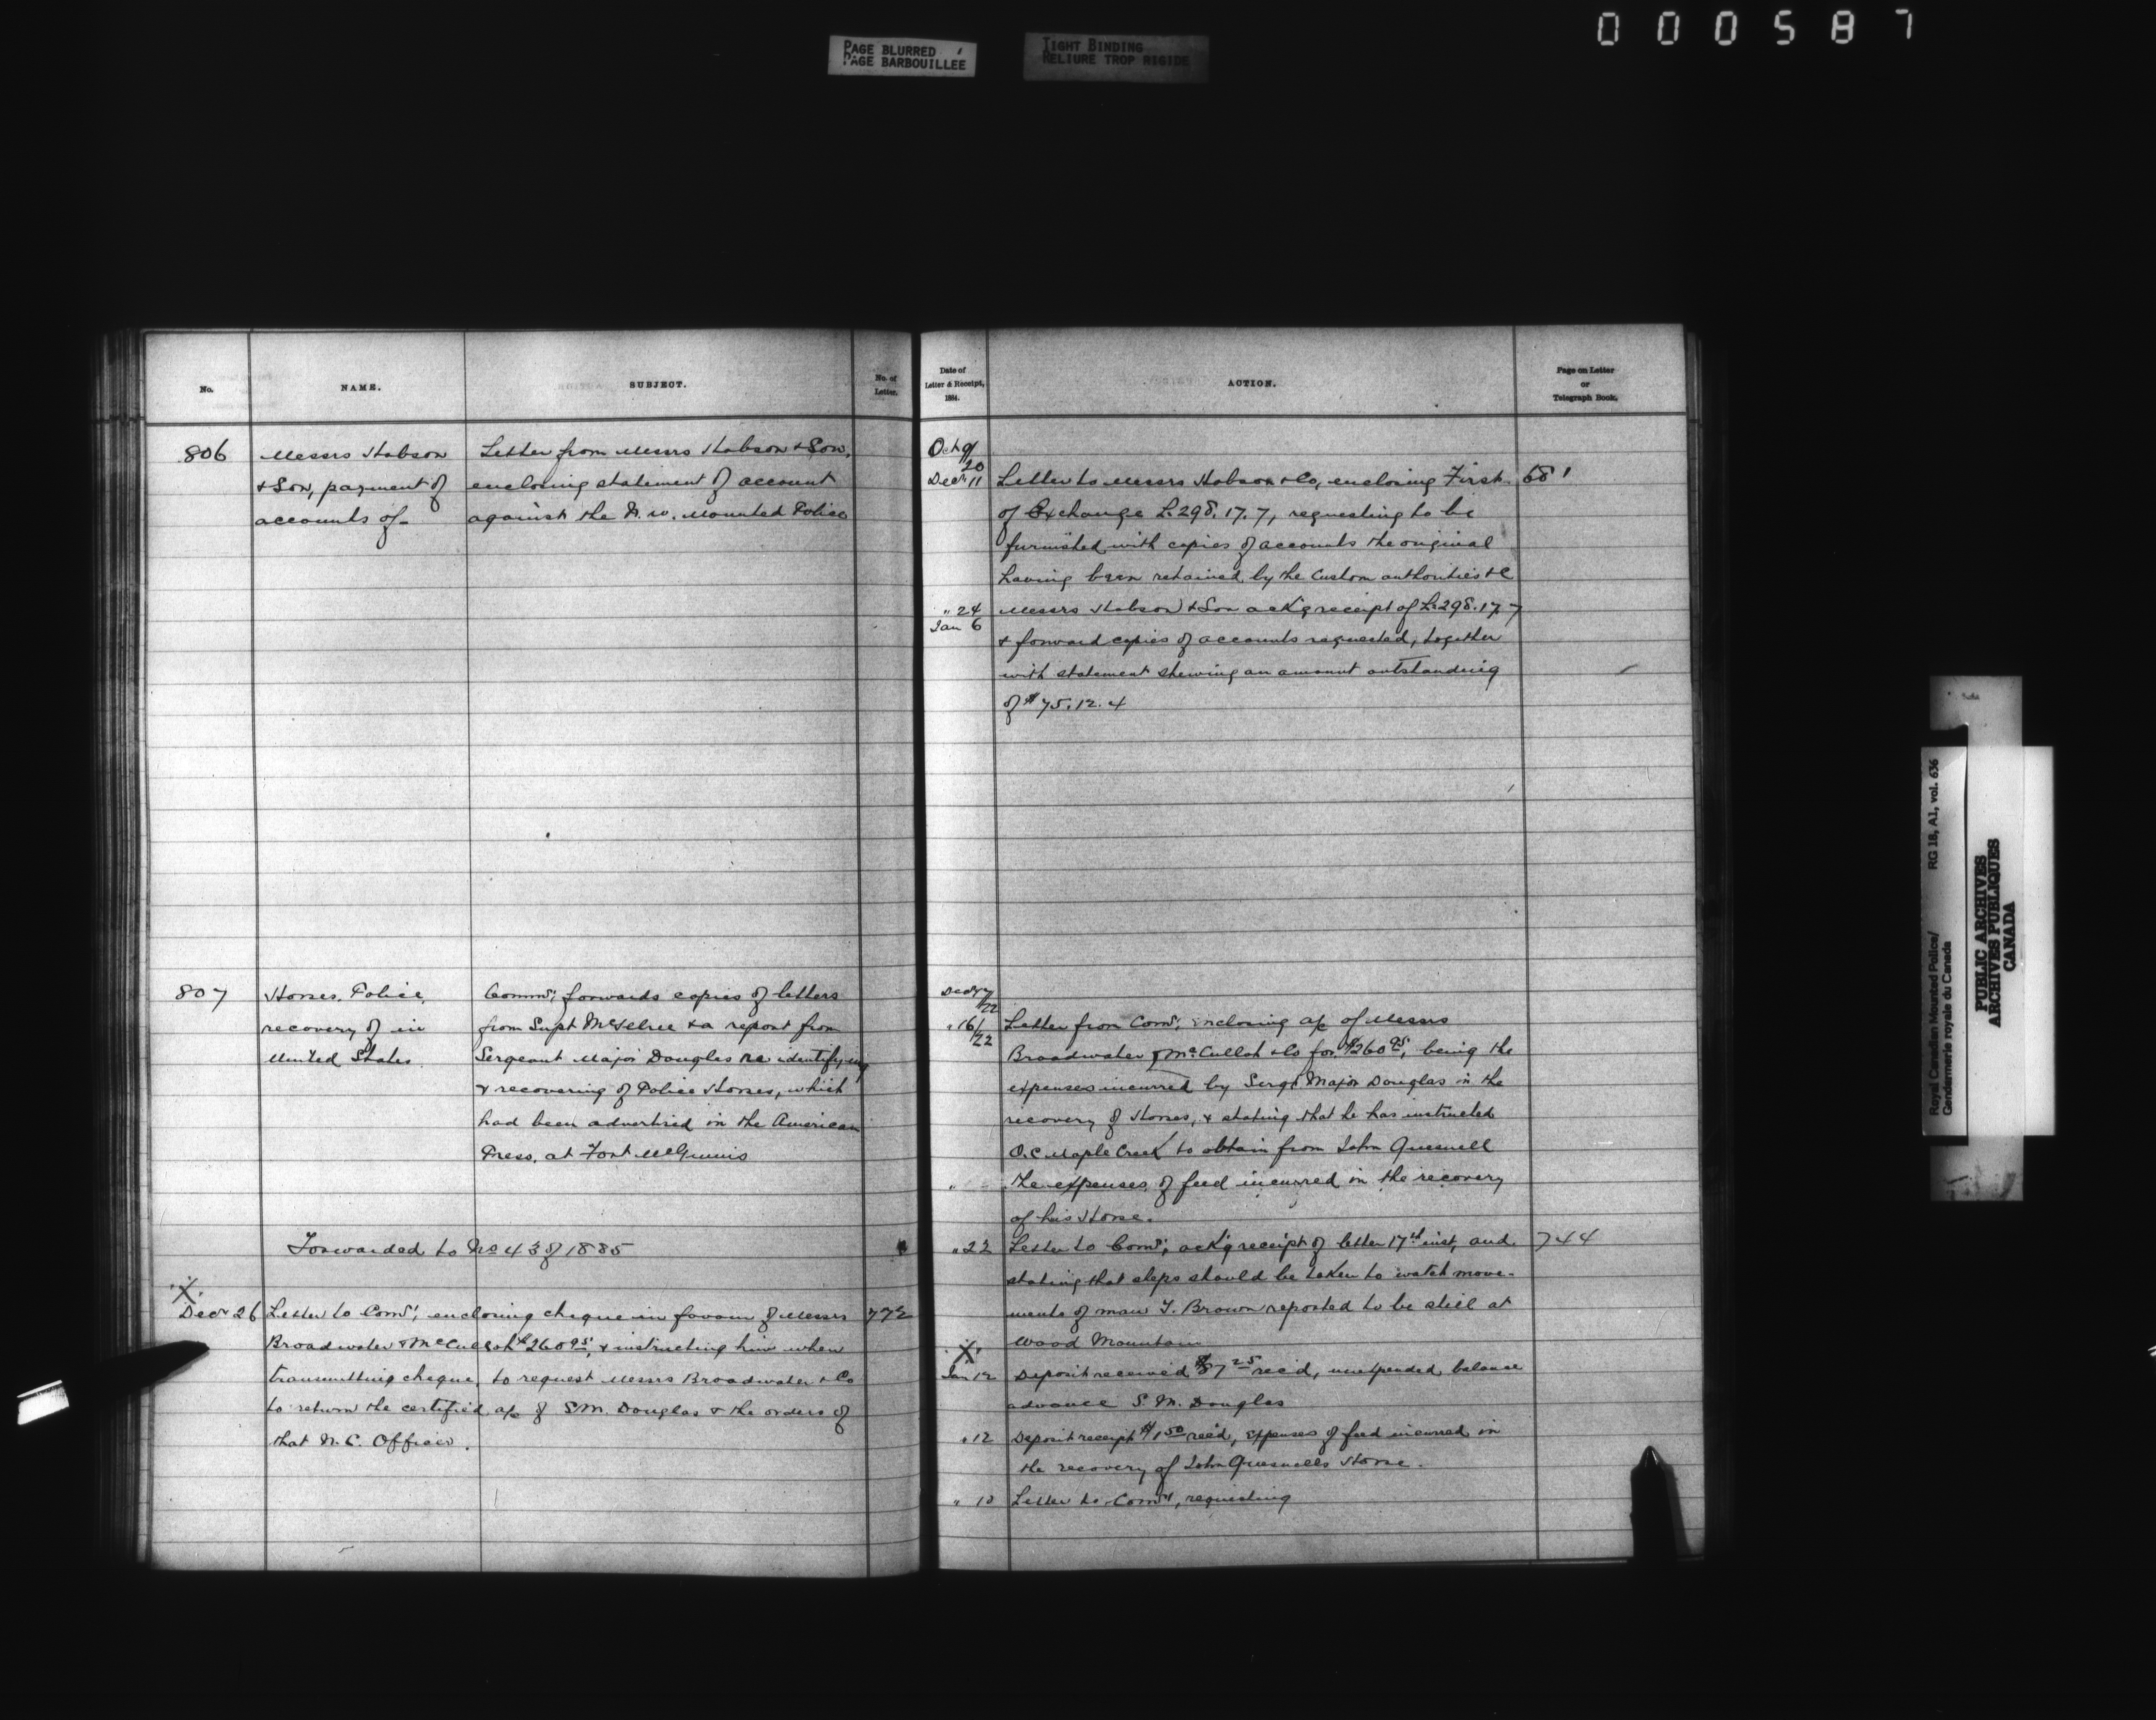 000587
PAGE BLURRED
PAGE BARBOUILLEE
TIGHT BINDING
RELIURE TROP RIGIDE
No.
NAME.
SUBJECT.
No. of
Letter.
806
Messrs Hobson
& Son, payment of
accounts of-
Letter from Messrs Hobson & Son,
enclosing statement of account
against the N.W. Mounted Police
807
Horses, Police,
recovery of in
United States
Commr forwards copies of letters
from Supt McIllree & a report from
Sergeant Major Douglas re identifying
& recovering of Police Horses, which
had been advertised in the American
Press, at Fort McGinnis
Forwarded to No 43 of 1885
X
Decr 26 Letter to Comr, enclosing cheque in favour of Messrs 772
Broadwater & McCulloh $260 95, & instructing him when
transmitting cheque, to request Messrs Broadwater & Co
to return the certified a/c of S.M. Douglas & the orders of
that N.C. Officer.
Date of
Letter & Receipt,
1884.
ACTION.
Page on Letter
or
Telegraph Book.
Oct 9/
20
Decr 11 Letter to Messrs Hobson & Co, enclosing First 681
of Exchange L. 298. 17. 7, requesting to be
furnished with copies of accounts the original
having been retained by the Custom authorities &c
" 24 Messrs Hobson & Son ackg receipt of L. 298. 17. 7
Jan 6
& forward copies of accounts requested, together
with statement shewing an amount outstanding
of $75. 12. 4
Decr 17/
22
" 16/ Letter from Comr, enclosing a/c of Messrs
22
Broadwater & McCulloh & Co for $260 95, being the
expenses incurred by Sergt Major Douglas in the
recovery of Horses, & stating that he has instructed
O.C Maple Creek to obtain from John Quesnell
" the expenses of feed incurred in the recovery
of his Horse.
" 22 Letter to Comr, ackg receipt of letter 17th inst, and 744
stating that steps should be taken to watch move-
ments of man T. Brown reported to be still at
Wood Mountain
X
Jan 12 Deposit received $87 25 rec'd, unexpended balance
advance S. M. Douglas
" 12 Deposit receipt $1 50 rec'd, Expenses of feed incurred in
the recovery of John Quesnells Horse.
" 10 Letter to Comr, requesting
Royal Canadian Mounted Police/ RG 18, A1, vol. 636
Gendarmerie royale du Canada
PUBLIC ARCHIVES
ARCHIVES PUBLIQUES
CANADA